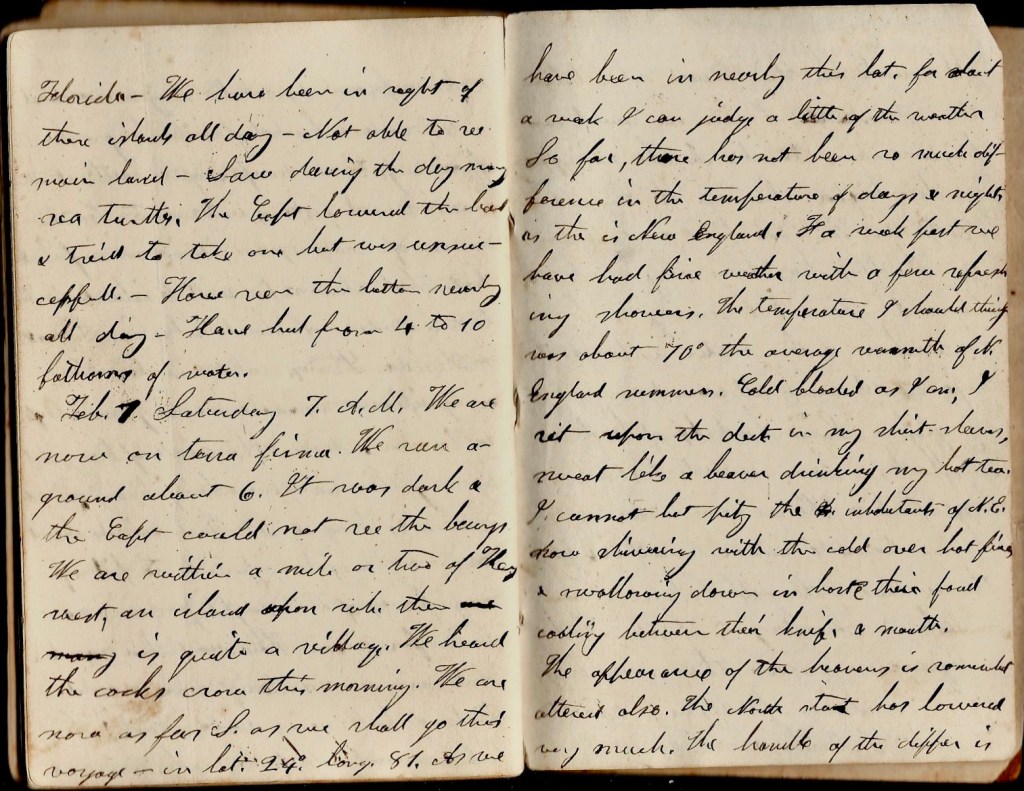 Florida – We have been in sight of
these islands all day – Not able to see
main land – Saw during the day many
sea turtles. The Capt lowered the boat
& tried to take one but was unsuc-
cessfull. – Have seen the bottom nearly
all day – Have but from 4 to 10
fathoms of water.
Feb. 7 Saturday 7. A.M. We are
now on terra firma. We ran a-
ground about 6. It was dark &
the Capt could not see the buoys
We are within a mile or two of Key
west, an island upon which there
is quite a village. We heard
the cocks crow this morning. We are
now as far S. as we shall go this
voyage – in lat. 24° long. 81. As we
have been in nearly this lat. for about
a week I can judge a little of the weather
So far, there has not been so much dif-
ference in the temperature of days & nights
as the is New England. For a week past we
have had fine weather with a few refresh
ing showers. The temperature I should think
was about 70° the average warmth of N.
England summers. Cold blooded as I am, I
sit upon the deck in my shirt-sleeves,
sweat like a beaver drinking my hot tea.
I cannot but pity the inhabitants of N.E.
now shivering with the cold over hot fires
& swallowing down in haste their food
cooling between their knife & mouth.
The appearance of the heavens is somewhat
altered also. The North star has lowered
very much. The handle of the dipper is